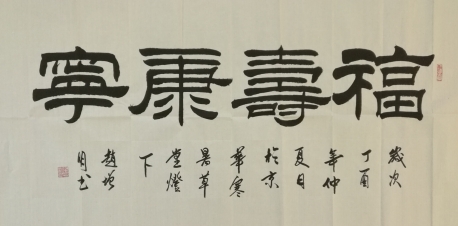 福壽康寧
歲次
丁酉
年仲
夏日
於京
華寒
暑草
堂燈
下
趙增
月書